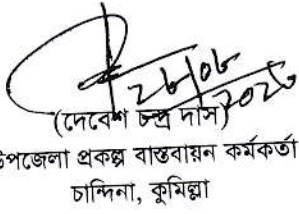 ২৮/০৮
২০২৩
(দেবেশ চন্দ্র দাস)
উপজেলা প্রকল্প বাস্তবায়ন কর্মকর্তা
চান্দিনা, কুমিল্লা